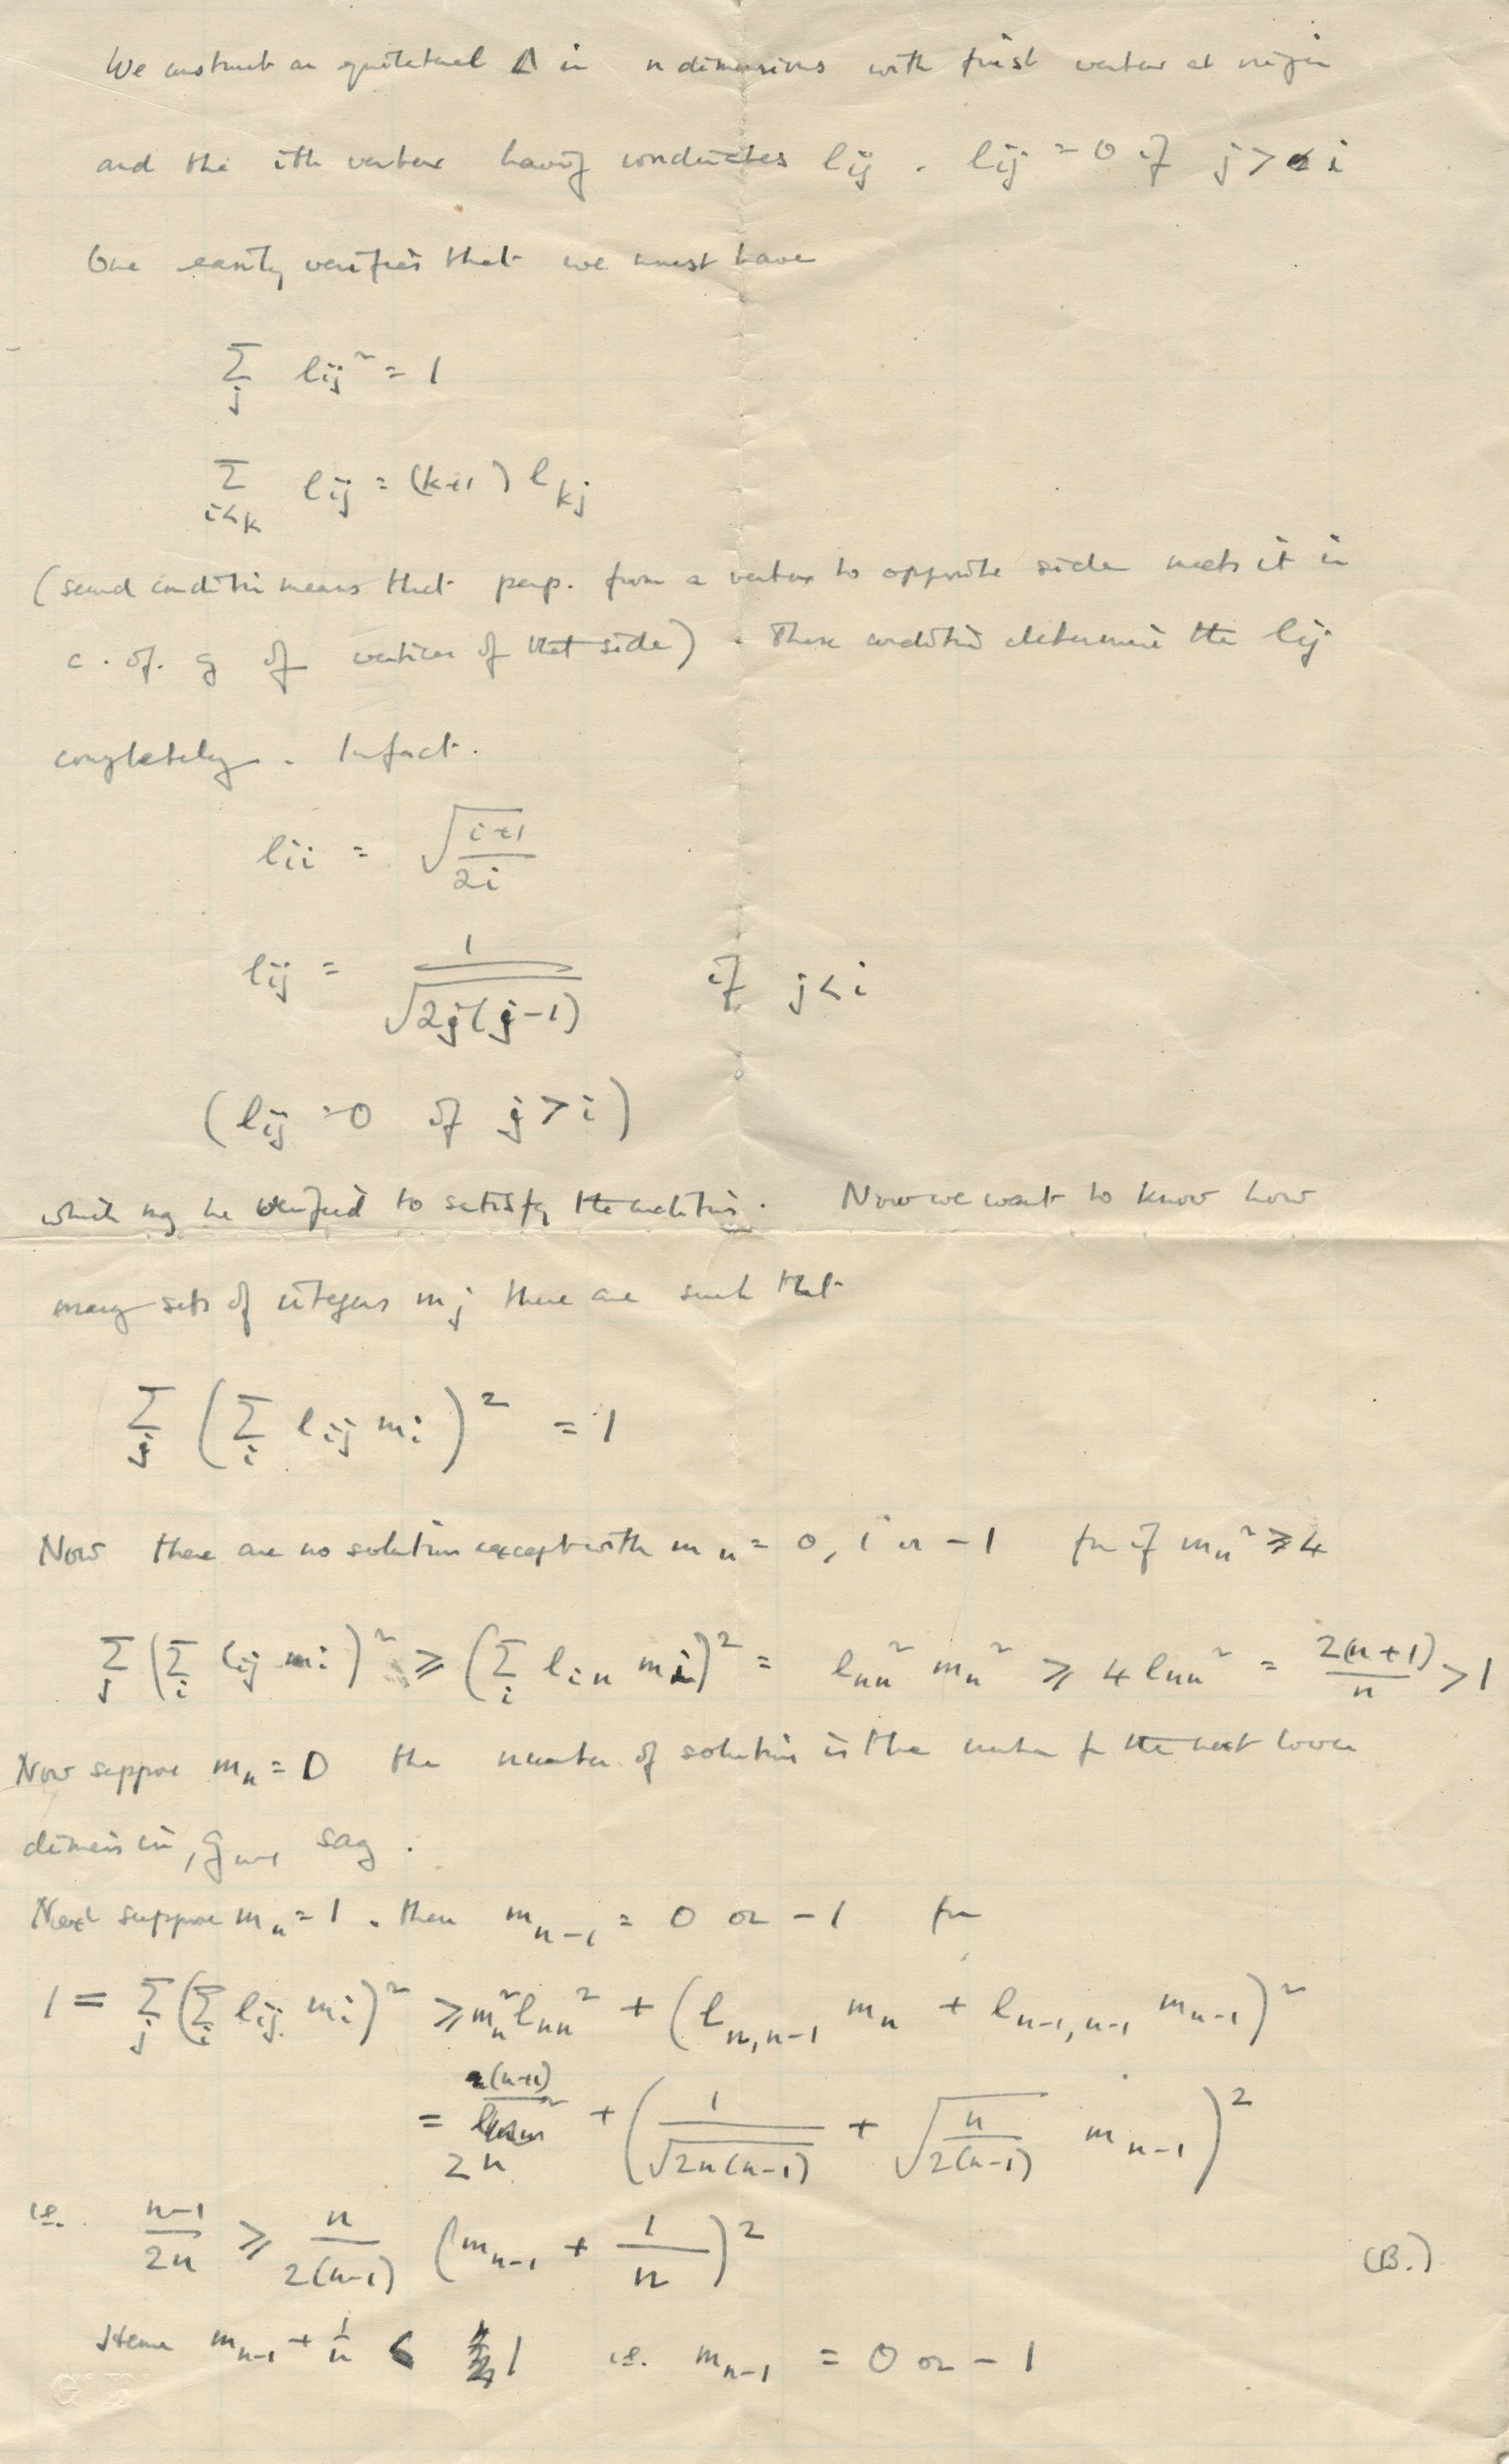 We construct an equilateral Δ in n dimensions with first vertex at origin
and the ith vertex having coordinates lij . lij = 0 if j > i
One easily verifies that we must have
∑_j lij² = 1
∑_{i<k} lij = (k+1) l_kj
(second condition means that perp. from a vertex to opposite side meets it in
c. of. g of vertices of that side) . These conditions determine the lij
completely . In fact .
lii = √((i+1)/2i)
lij = 1/√(2j(j-1)) if j < i
(lij = 0 if j > i)
which may be verified to satisfy the conditions. Now we want to know how
many sets of integers mj there are such that
∑_j (∑_i lij mi)² = 1
Now there are no solutions except with m_n = 0, 1 or -1 for if m_n² ⩾ 4
∑_j (∑_i lij mi)² ⩾ (∑_i l_in mi)² = l_nn² m_n² ⩾ 4 l_nn² = 2(n+1)/n > 1
Now suppose m_n = 0 the number of solutions is the number for the next lower
dimension, g_{n-1} say .
Next suppose m_n = 1 . then m_{n-1} = 0 or -1 for
1 = ∑_j (∑_i lij mi)² ⩾ m_n² l_nn² + (l_{n,n-1} m_n + l_{n-1,n-1} m_{n-1})²
= (n+1)/2n + (1/√(2n(n-1)) + √(n/2(n-1)) m_{n-1})²
i.e. (n-1)/2n ⩾ n/2(n-1) (m_{n-1} + 1/n)²
(B.)
Hence m_{n-1} + 1/n < 1 i.e. m_{n-1} = 0 or -1